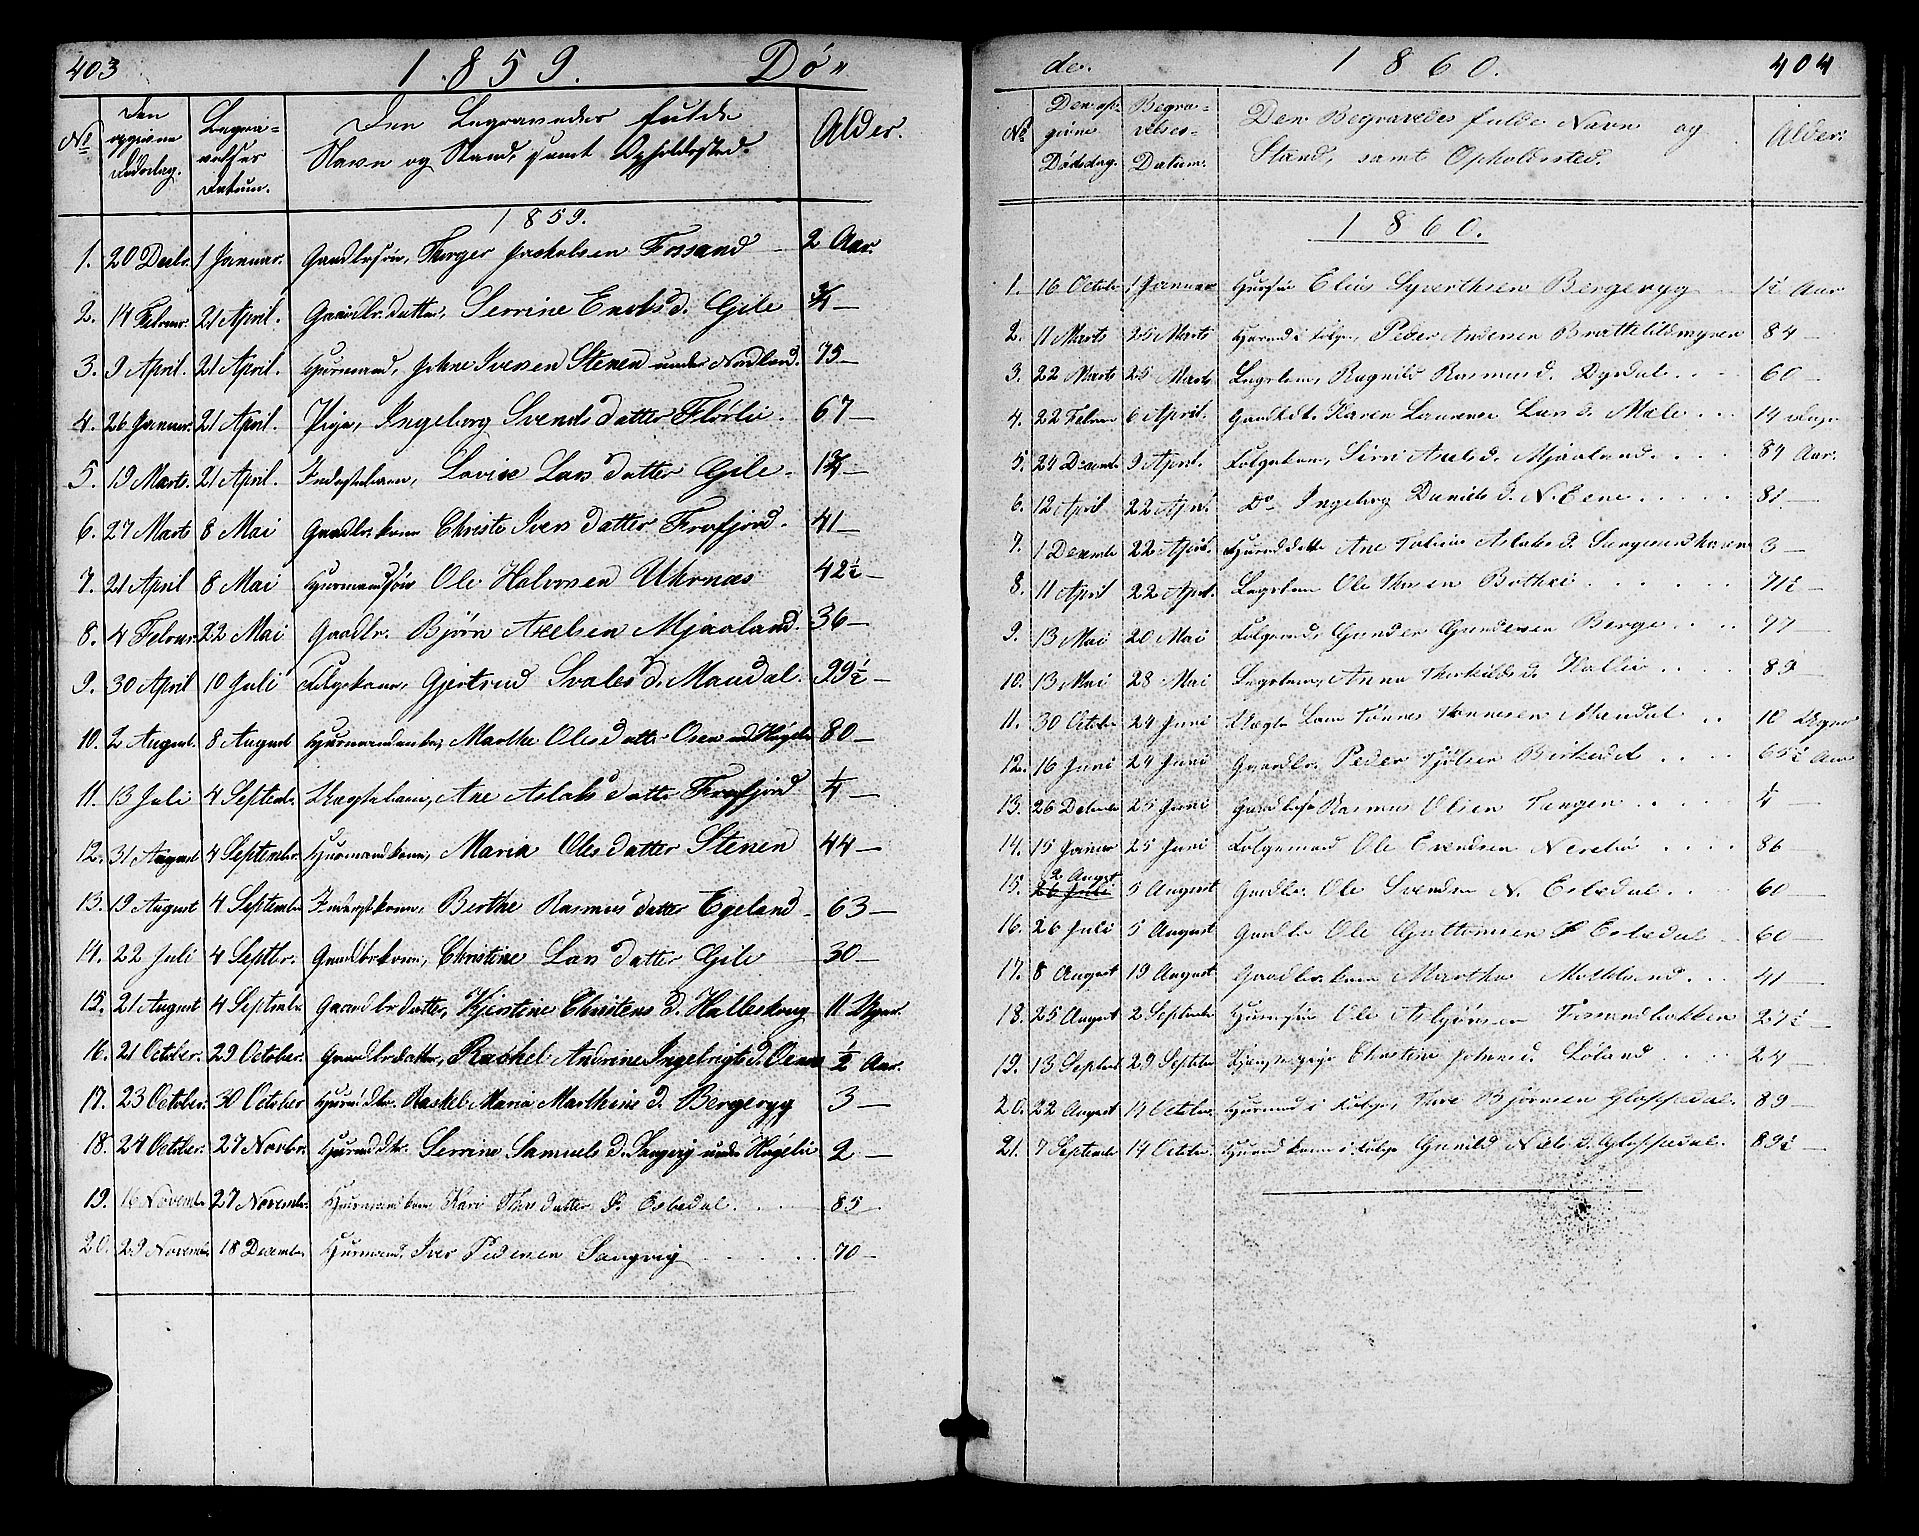 403
1859.
Dø„
No
Den opgivne Dødsdag.
Begra= velses Datum.
Den Begravedes fulde
Navn og Stand, samt Opholdssted.
Alder.
1859.
1. 20 Decbr. 1 Januar. Gaardbrsøn, Torger Jackobsen Fossand 2 Aar.
2. 14 Febrar. 21 April. Gaardbr.datter, Serrine Enoksd. Gile ¾ —
3. 9 April. 21 April. Huusmand, Johne Iversen Stenen under Nedland. 75 —
4. 26 Januar. 21 April. Pige, Ingeborg Svends datter Flørlie. 67 —
5. 19 Marts. 21 April. Lovise Lars datter Gile. 1¾ —
6. 27 Marts 8 Mai Gaardbr.kone Christi Ivers datter Frafjord. 41 —
7. 21 April 8 Mai Huusmandsøn Ole Halvorsen Uhrnæs 42½ —
8. 4 Februar. 22 Mai Gaardbr. Bjørn Axelsen Mjaaland. 36 —
9. 30 April 10 Juli Folgekone, Gjertrud Svalesd. Maudal. 99½ —
10. 2 August. 8 August Huusmandenke, Marthe Olesdatter Osen ved Høgelie 80 —
11. 13 Juli 4 Septembr. Uægtebarn, Ane Aslaksdatter Frafjord ¼ —
12. 31 August 4 Septembr. Huusmandkone, Maria Olesdatter Stenen 44 —
13. 19 August 4 Septembr Inderstkone, Berthe Rasmusdatter Egeland. 63 —
14. 22 Juli 4 Septbr. Gaardbrkone, Christine Lars datter Gile 30 —
15. 21 August 4 Septembr Gaardbrdatter, Kjerstine Christens d. Halleskong 11 Uger.
16. 21 October. 29 October. Gaardbrdatter, Rachel Andrine Ingebrigts d. Osen ½ Aar.
17. 23 October. 30 October Raskel Maria Marthine d. Bergeryg 3 —
18. 24 October. 27 Novbr. Serrine Samuels d. Sangvig under Høgelie 2 —
19. 16 Novembr 27 Novembr. Huusmandkone Kari Thors datter I. Esbedal. 85 —
20. 29 Novembr 18 Decembr. Huusmand, Iver Pedersen Sangvig 70 —
de.
1860.
404
No
Den op- givne Dødsdag.
Begra= velses- Datum.
Den Begravedes fulde Navn og
Stand, samt Opholdssted.
Alder.
1860.
1. 16 Octobr 1 Januar Elias Syverthsen Bergeryg 1½ Aar
2. 11 Marts 25 Marts Huusmd i Folge, Peder Andersen Brattelidmyren 84 —
3. 22 Marts 25 Marts Legdslem, Ragnild Rasmusd. Dyrdal. 60 —
4. 22 Februar 6 April. Karen Laurense Lars d. Mæle 14 Dage
5. 24 Decembr 9 April. Folgekone, Siri Axels d. Mjaaland. 84 Aar.
6. 12 April 22 April Do Ingeborg Daniels d. N. Eene 81 —
7. 1 Decembr 22 April. Ane Aslaks d. 3 —
8. 11 April 22 April. Legdslem Ole Bothei 71½ —
9. 13 Mai 20 Mai Folgemd, Gunder Gundersen Berge 77 —
10. 13 Mai 28 Mai Legdslem, Anna Thorkilds d. 89 —
11. 30 Octobr 24 Juni Uægte barn Tønnes Tønnesen Maudal 10 Uger
12. 16 Juni 24 Juni Gaardbr. Peder Birkedal 65½ Aar
13. 26 Decembr 25 Juni Gaardbrsøn Rasmus Olsen Tangen ¼
14. 15 Januar 25 Juni Folgemand Ole Evendsen Nerebø 86 —
15. 26 Juli 2 Augst 5 August Gaardbr. Ole Svendsen N. Esbedal. 60 —
16. 26 Juli 5 August Gaardbr. Ole Guttormsen I Esbedal. 60 —
17. 8 August 19 August. Gaardbr.kone Martha 41 —
18. 25 August 2 Septembr Huusmdsøn Ole Asbjørnsen Fossandbakken 27½ —
19. 13 Septbr 29 Septembr Tjenestepige Christine Johnsd. Løland 24 —
20. 22 August 14 October Huusmd i Folge, Thore Bjørnsen Gloppedal. 89 —
21. 7 Septembr 14 Octobr. Huusmd kone i Folge Gunild Niels d. Gloppedal. 89½ —